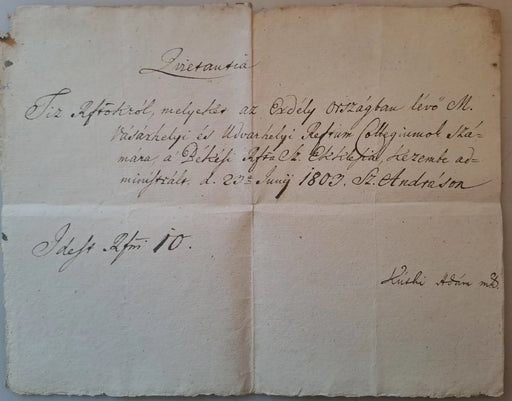 Quietantia
Tiz Rftokról, mellyeket az Erdély Országban lévő M.
Vásárhelyi és Udvarhelyi Reftum Collegiumok Szá-
mára, a' Békési Refta Sz. Ekklésia kezembe ad-
ministrált. d. 23a Junij 1803. Sz. Andráson
Idest Rfni 10.
Ádám mk.